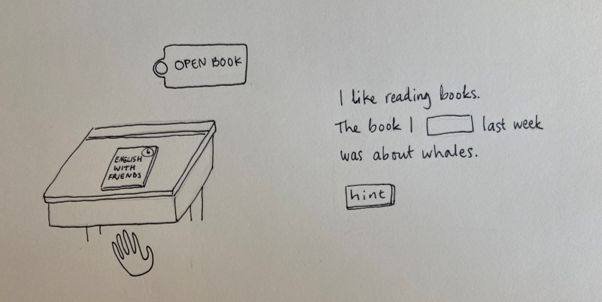 OPEN BOOK
ENGLISH
WITH
FRIENDS
I like reading books.
The book I last week
was about whales.
hint